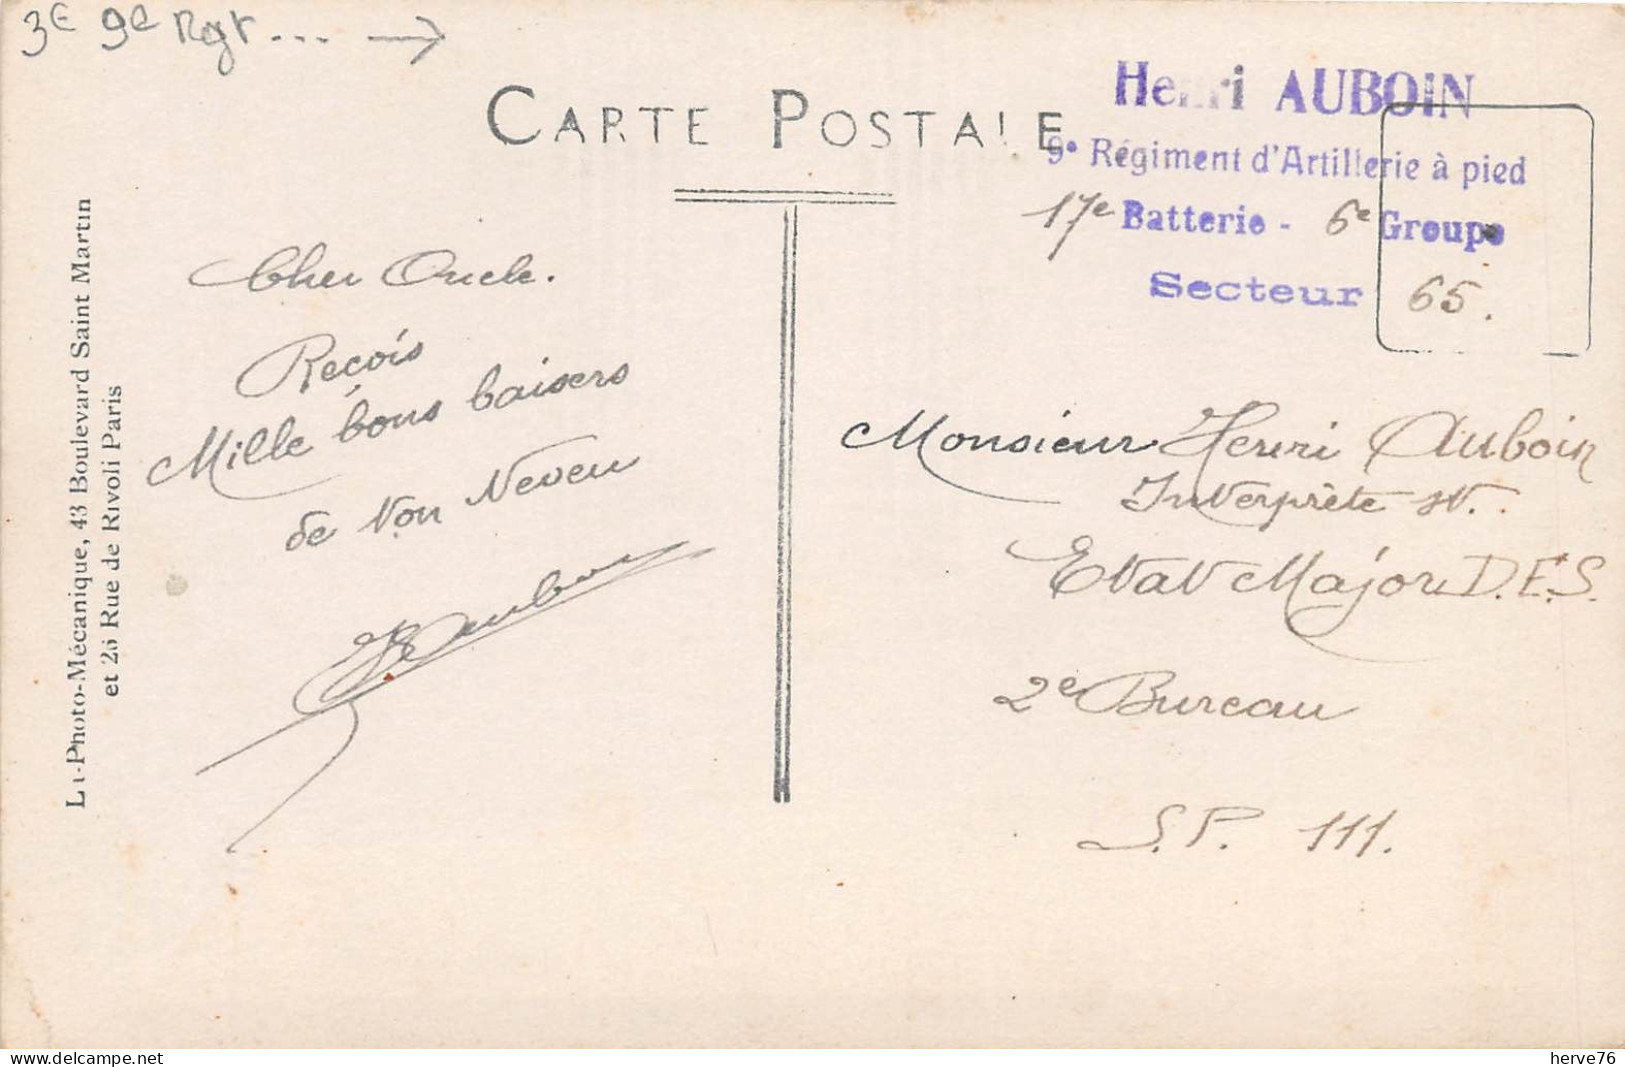 3e 9e Rgt... →
CARTE POSTALE
Henri AUBOIN
9e Régiment d'Artillerie à pied
17e Batterie - 6e Groupe
Secteur 65.
La Photo-Mécanique, 43 Boulevard Saint Martin
et 26 Rue de Rivoli Paris
Cher Oncle.
Reçois
Mille bons baisers
de ton Neveu
HAuboin
Monsieur Henri Auboin
Interprète st.
Etat Major D.E.S.
2e Bureau
S.P. 111.
www.delcampe.net
herve76